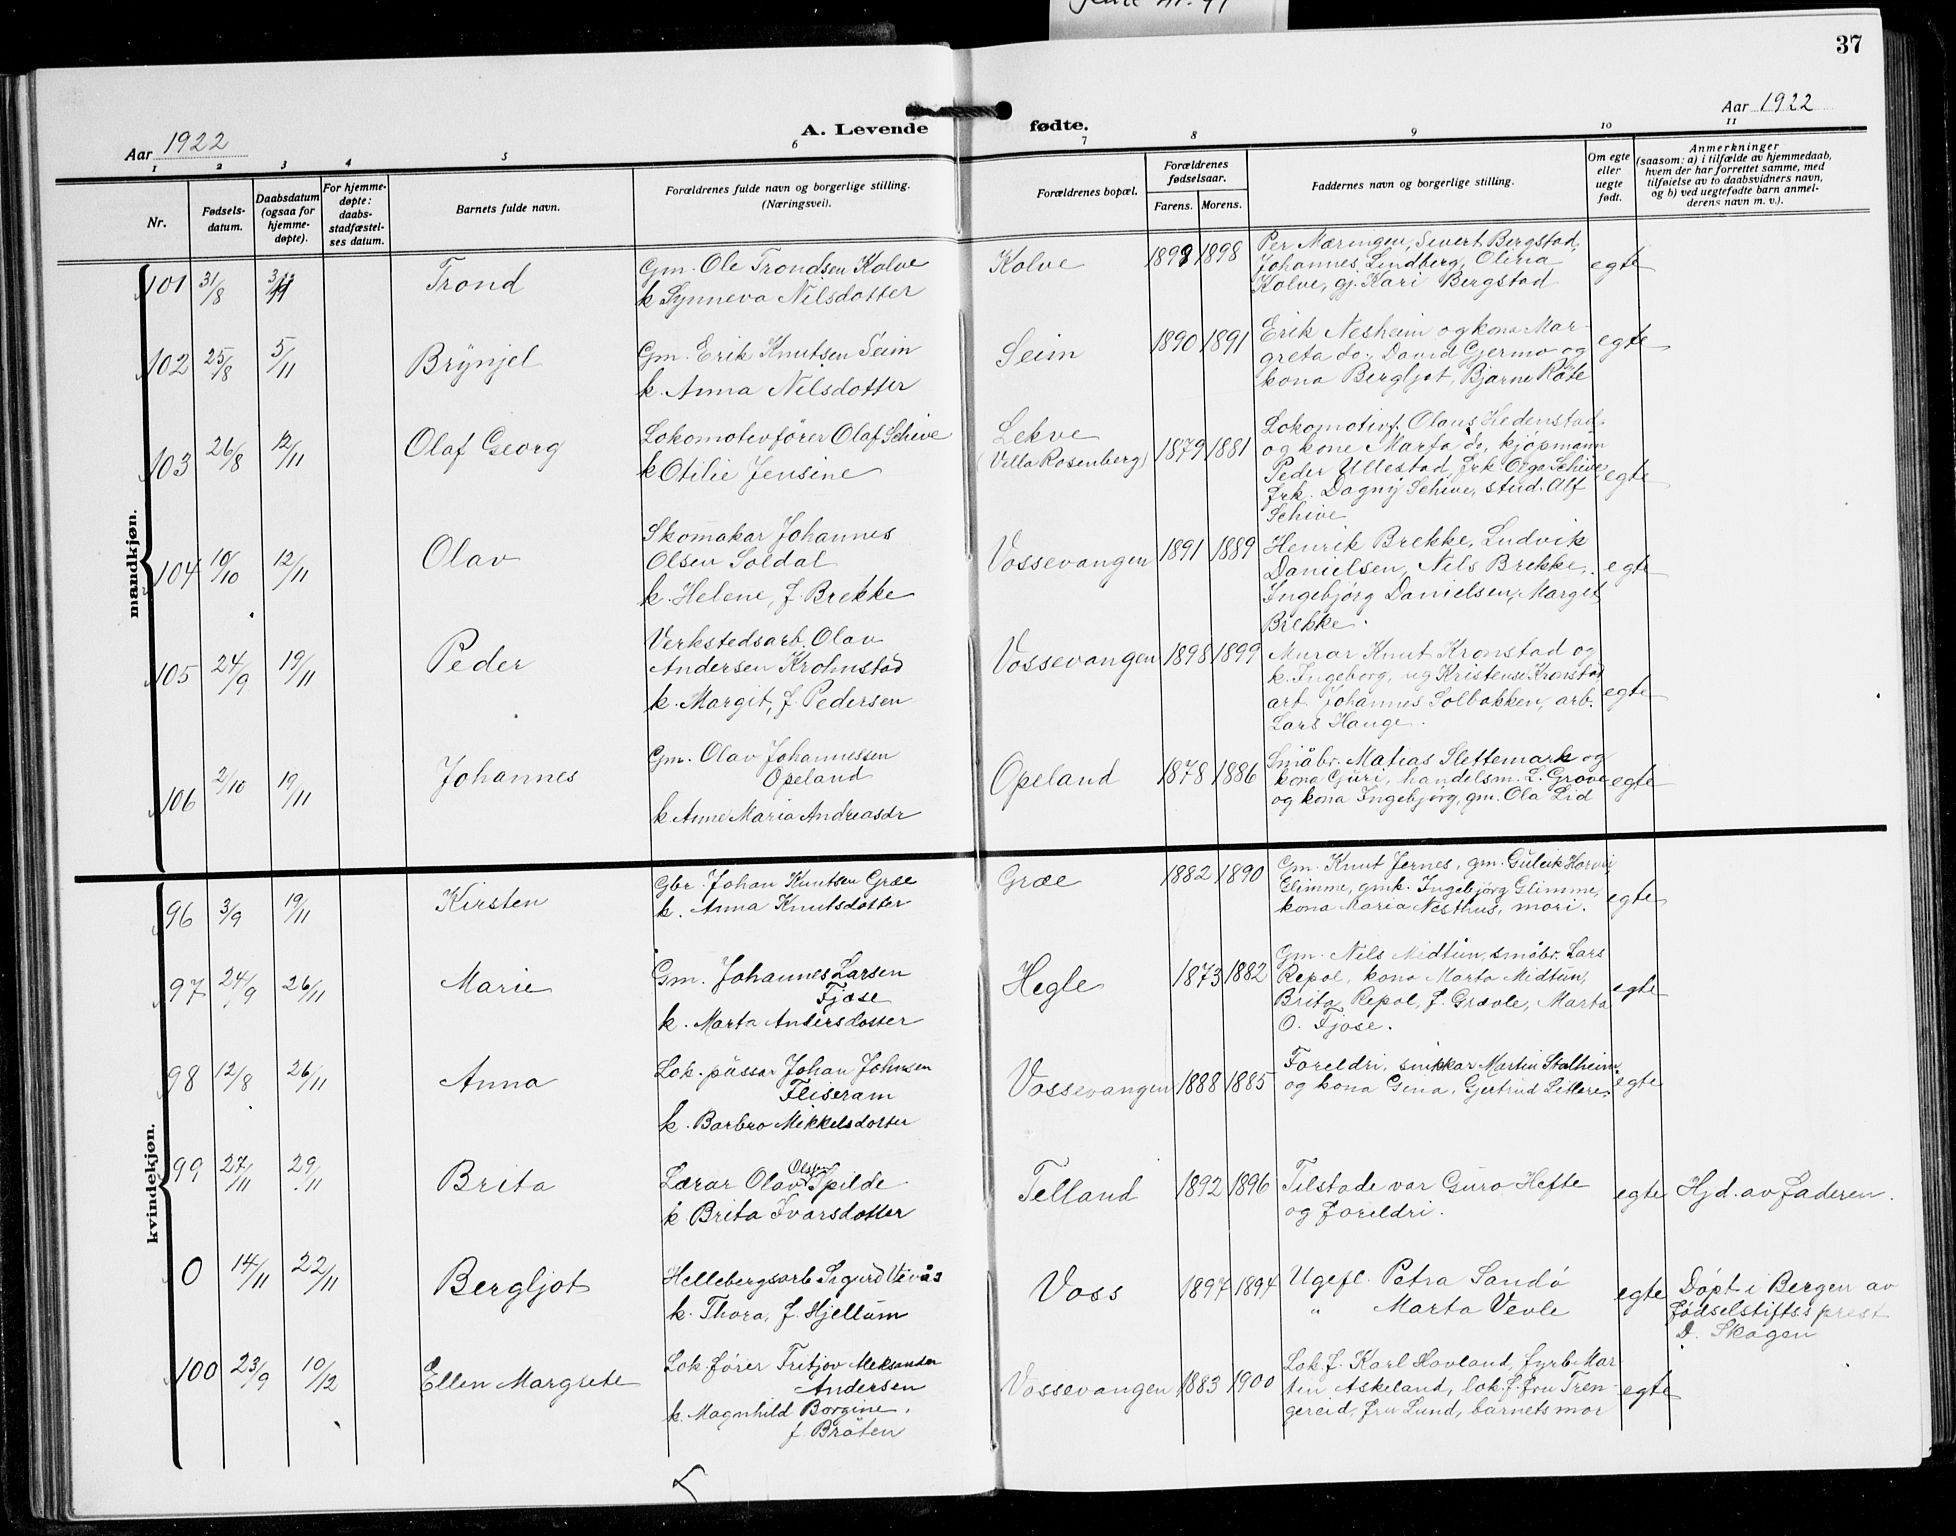 37
Aar 1922
A. Levende
fødte.
Aar 1922
1 2 3 4 5 6 7 8 9 10 11
Nr.
Fødsels-
datum.
Daabsdatum
(ogsaa for
hjemme-
døpte).
For hjemme-
døpte:
daabs-
stadfæstel-
ses datum.
Barnets fulde navn.
Forældrenes fulde navn og borgerlige stilling.
(Næringsvei).
Forældrenes bopæl.
Forældrenes
fødselsaar.
Farens. Morens.
Faddernes navn og borgerlige stilling.
Om egte
eller
uegte
født.
Anmerkninger
(saasom: a) i tilfælde av hjemmedaab,
hvem der har forrettet samme, med
tilføielse av to daabsvidners navn,
og b) ved uegtefødte barn anmel-
derens navn m. v.).
mandkjøn.
101 31/8 Trond
Gm. Ole Trondsen Kolve
k Synneva Nilsdotter
Kolve 1898 1898
Per Mæringen, Sivert Bergstad,
Johannes Lindberg, Olina
Kolve, gj. Kari Bergstad
egte
102 25/8 5/11 Brynjel
Gm. Erik Knutsen Seim
k. Anna Nilsdotter
Seim 1890 1891
Erik Nesheim og kona Mar-
greta do., David Gjermo og
kona Bergljot, Bjarne Røte
egte
103 26/8 12/11 Olaf Georg
Lokomotivfører Olaf Schive
k Otilie Jensine
Lekve
(Villa Rosenberg) 1879 1881
Lokomotivf. Olaus Hedenstad
og kone Marta do, kjøpmann
Peder Ullestad, frk Olga Schive,
frk. Dagny Schive, stud. Alf
Schive
egte
104 10/10 12/11 Olav
Skomakar Johannes
Olsen Soldal
k. Helene, f. Brekke
Vossevangen 1891 1889
Henrik Brekke, Ludvik
Danielsen, Nils Brekke,
Ingebjørg Danielsen, Margit
Brekke.
egte
105 24/9 19/11 Peder
Verkstedsarb. Olav
Andersen Krohnstad
k. Margit, f. Pedersen
Vossevangen 1898 1899
Murar Knut Kronstad og
k. Ingeborg, ug Kristense Kronstad
arb. Johannes Solbakken, arb.
Lars Hauge.
egte
106 2/10 19/11 Johannes
Gm. Olav Johannessen
Opeland
k. Anne Maria Andreasdr
Opeland 1878 1886
Småbr. Matias Slettemark og
kona Guri, handelsm. L. Grove
og kona Ingebjørg, gm. Ola Lid
egte
kvindekjøn.
96 3/9 19/11 Kirsten
Gbr. Johan Knutsen Græe
k. Anna Knutsdotter
Græe 1882 1890
Gm. Knut Jernes, gm. Guleik Horvei
Glimme, gmk. Ingebjørg Glimme,
kona Maria Nesthus, mori.
egte
97 24/9 26/11 Marie
Gm. Johannes Larsen
Fjose
k. Marta Andersdotter
Hegle 1873 1882
Gm. Nils Midtun, småbr. Lars
Repål, kona Marta Midtun,
Brita Repål, f. Grævle, Marta
O. Fjose.
egte
98 12/8 26/11 Anna
Lok. pussar Johan Johnsen
Fliseram
k. Barbro Mikkelsdotter
Vossevangen 1888 1885
Foreldri, snikkar Martin Stalheim
og kona Gina, Gjertrud Litlere
egte
99 27/11 29/11 Brita
Lærar Olav Olsen Spilde
k Brita Ivarsdotter
Telland 1892 1896
Tilstade var Guro Hefte
og foreldri.
egte Hjd. av faderen.
0 14/11 22/11 Bergljot
Hellebergsarb Sigurd Vevås
k. Thora, f. Hjellum
Voss 1897 1894
Ugefl. Petra Sandø
" Marta Vevle
egte Døpt i Bergen av
fødselstiftss prest
D. Skagen
100 23/9 10/12 Ellen Margrete
Lok. fører Fritjov Aleksander
Andersen
k. Magnhild Borgine,
f. Bråten
Vossevangen 1883 1900
Lok. f. Karl Hovland, fyrb Mar
tin Askeland, lok. f. fru Tren-
gereid, fru Lund, barnets mor
egte